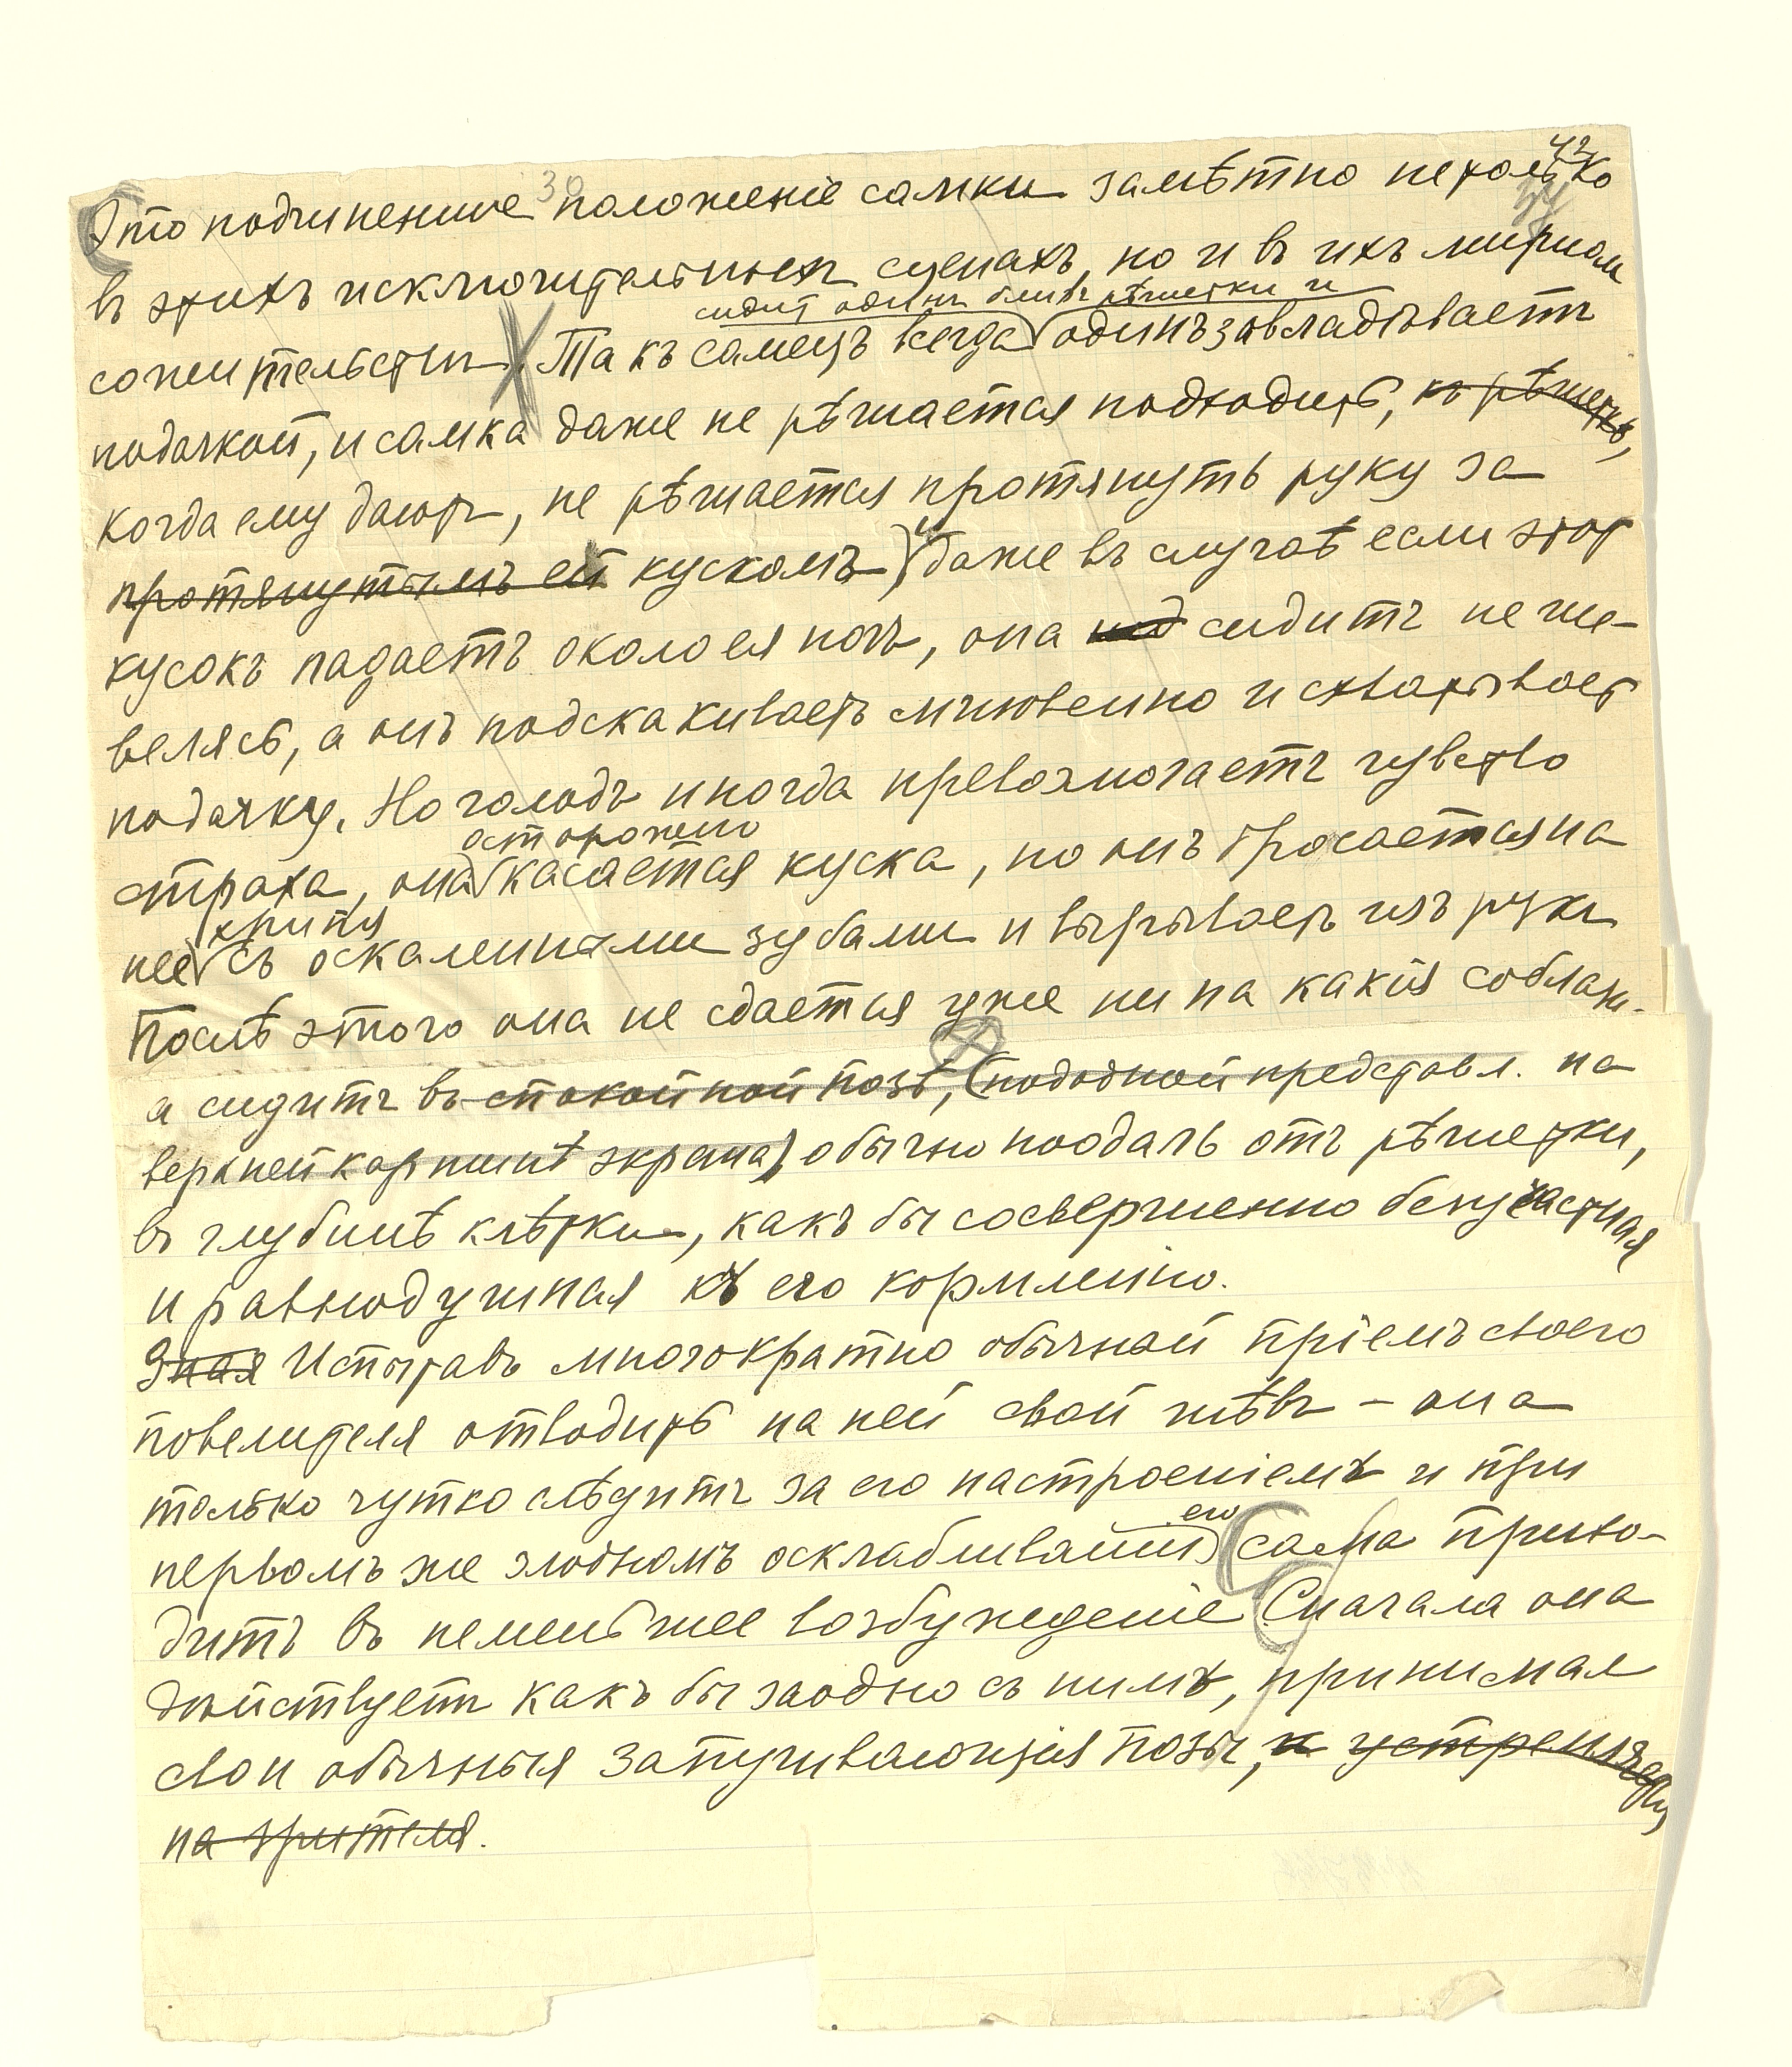 42
30
34
Это подчиненное положеніе самки замѣтно не только
въ этихъ исключительныхъ сценахъ, но и въ ихъ мирном
сидит один близъ рѣшетки и
сожительствѣ. Такъ самецъ всегда один завладѣваетъ
подачкой, и самка даже не рѣшается подходить, къ рѣшеткѣ,
когда ему даютъ, не рѣшается протянуть руку за
протянутымъ ей кускомъ) и даже въ случаѣ если этот
кусокъ падаетъ около ея ногъ, она под сидитъ не ше-
велясь, а онъ подскакиваетъ мгновенно и схватывает
подачку. Но голодъ иногда превозмогаетъ чувство
осторожно
страха, она касается куска, но онъ бросается на
хрипя
нее съ оскаленными зубами и вырываетъ изъ руки
Послѣ этого она не сдается уже ни на какія соблазн.
а сидитъ въ спокойной позѣ, (подобной представл. на
верхней картинѣ экрана) обычно поодаль отъ рѣшетки,
въ глубинѣ клѣтки, какъ бы совершенно безучастная
и равнодушная къ его кормленію.
Зная Испытавъ многократно обычной пріемъ своего
повелителя отводить на ней свой гнѣвъ – она
только чутко слѣдитъ за его настроеніемъ и при
его
первомъ же злобномъ осклабливаніи сама прихо-
дитъ въ неменьшее возбужденіе (Сначала она
дѣйствуетъ какъ бы заодно съ нимъ, принимая
свои обычныя запугивающія позы, и устремляясь
на зрителя.